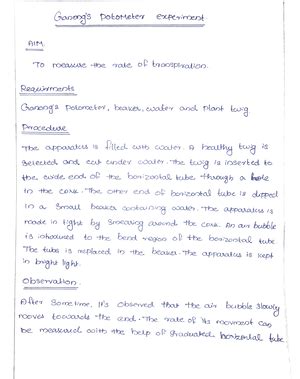 Ganong's Potometer experiment
AIM
To measure the rate of transpiration.
Requirments
Ganong's potometer, beaker, water and plant twig
Procedure
The apparatus is filled with water. A healthy twig is
selected and cut under water. The twig is inserted to
the wide end of the horizontal tube through a hole
in the cork. The other end of horizontal tube is dipped
in a small beaker containing water. The apparatus is
made in tight by smearing around the cork. An air bubble
is introduced to the bend region of the horizontal tube
The tube is replaced in the beaker. The apparatus is kept
in bright light.
Observation.
After sometime, it's observed that the air bubble slowly
moves towards the end. The rate of its movment can
be measured with the help of graduated horizontal tube